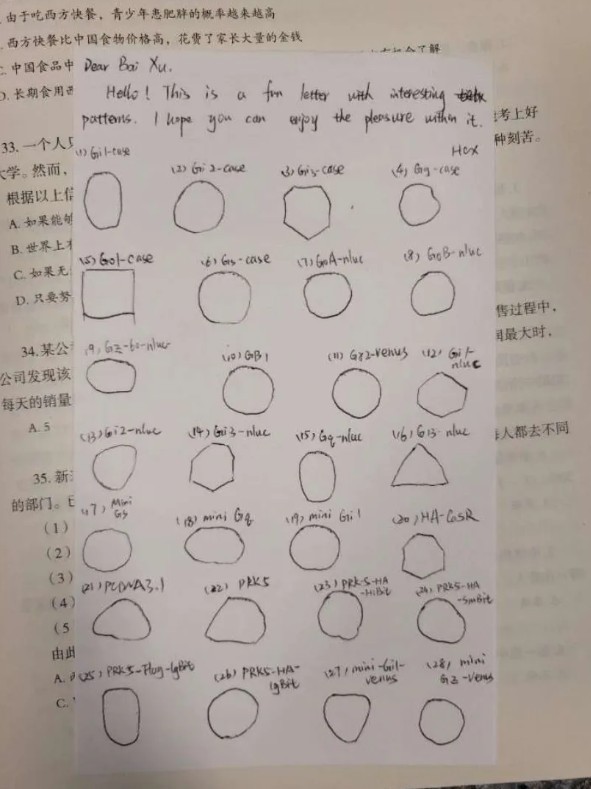 由于吃西方快餐，青少年患肥胖的概率越来越高
西方快餐比中国食物价格高，花费了家长大量的金钱
C. 中国食品中
D. 长期食用西
33. 一个人只
大学。然而，
根据以上信
A. 如果能够
B. 世界上有
C. 如果无
D. 只要努
34. 某公
公司发现该
每天的销量
A. 5
35. 新
的部门。
(1)
(2)
(3)
(4)
(5
由此
A.
C.
了解
考上好
种刻苦。
售过程中，
最大时，
每人都去不同
Dear Bai Xu.
Hello! This is a fun letter with interesting
patterns. I hope you can enjoy the pleasure within it.
Hex
(1) Gi1-case
(2) Gi2-case
(3) Gi3-case
(4) Gq-case
(5) Go1-case
(6) Gs-case
(7) GoA-nluc
(8) GoB-nluc
(9) Gz-60-nluc
(10) GB1
(11) Gγ2-venus
(12) Gi1-
nluc
(13) Gi2-nluc
(14) Gi3-nluc
(15) Gq-nluc
(16) G13-nluc
(17) Mini
Gs
(18) mini Gq
(19) mini Gi1
(20) HA-CasR
(21) PCDNA3.1
(22) PRK5
(23) PRK5-HA
-HiBit
(24) PRK5-HA
-SmBit
(25) PRK5-Flag-LgBit
(26) PRK5-HA-
LgBit
(27) mini-Gi1-
venus
(28) mini
Gz-venus